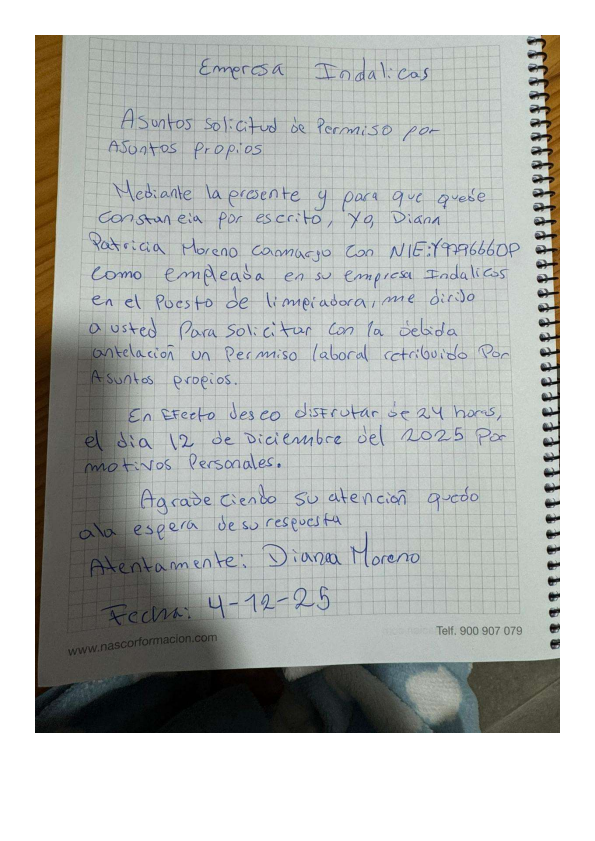 Empresa Indalicas
Asuntos solicitud de Permiso por
Asuntos propios
Mediante la presente y para que quede
Constancia por escrito, Yo, Diana
Patricia Moreno Camargo Con NIE:Y9796660P
como empleada en su empresa Indalicos
en el Puesto de limpiadora, me dirijo
a usted Para solicitar con la debida
antelación un Permiso laboral retribuido Por
Asuntos propios.
En Efecto deseo disfrutar de 24 horas,
el dia 12 de Diciembre del 2025 Por
motivos Personales.
Agradeciendo su atención quedo
ala espera de su respuesta
Atentamente: Diana Moreno
Fecha: 4-12-25
www.nascorformacion.com
Telf. 900 907 079